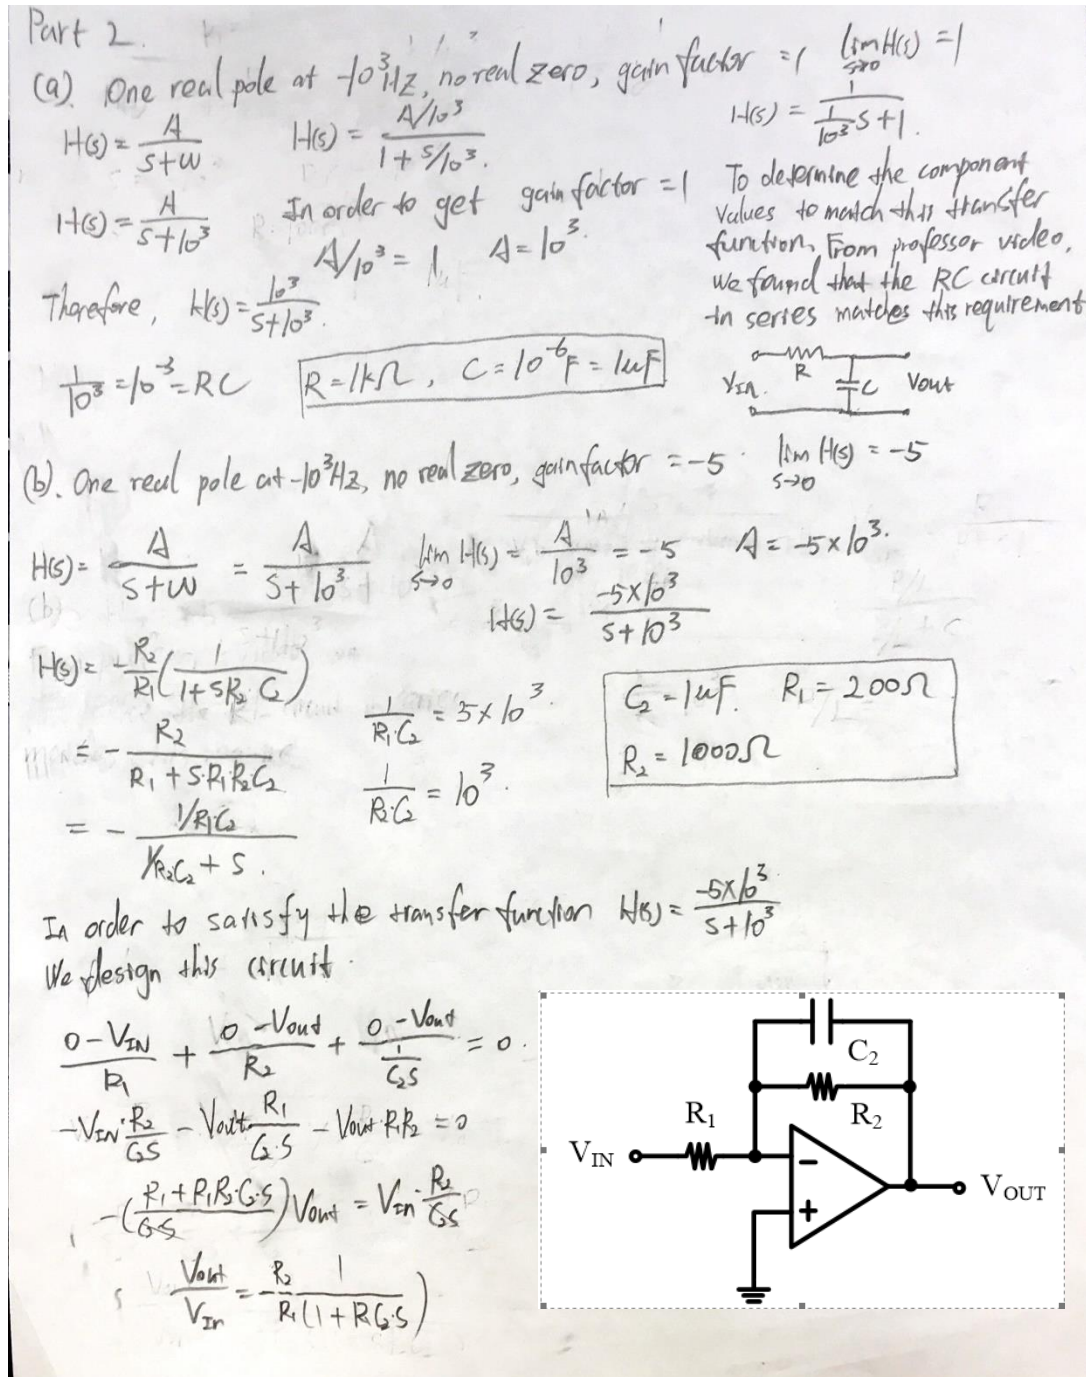 Part 2.
(a). One real pole at -10³Hz, no real zero, gain factor = 1 lim s→0 H(s) = 1
H(s) = A / (s+ω) H(s) = (A/10³) / (1 + s/10³). H(s) = 1 / (1/10³ s + 1).
H(s) = A / (s+10³) In order to get gain factor = 1
A/10³ = 1 A = 10³.
Therefore, H(s) = 10³ / (s+10³).
To determine the component
values to match this transfer
function, From professor video,
we found that the RC circuit
in series matches this requirement
1/10³ = 10⁻³ = RC R = 1kΩ, C = 10⁻⁶F = 1uF
VIN. R C Vout
(b). One real pole at -10³Hz, no real zero, gain factor = -5. lim s→0 H(s) = -5
H(s) = A / (s+ω) = A / (s+10³) lim s→0 H(s) = A / 10³ = -5 A = -5×10³.
H(s) = -5×10³ / (s+10³)
H(s) = - R₂/R₁ (1 / (1+SR₂C₂))
= - R₂ / (R₁ + S·R₁R₂C₂)
= - (1/R₁C₂) / (1/R₂C₂ + S).
1/(R₁C₂) = 5×10³.
1/(R₂·C₂) = 10³.
C₂ = 1uF. R₁ = 200Ω
R₂ = 1000Ω
In order to satisfy the transfer function H(s) = -5×10³ / (s+10³)
We design this circuit.
(0-VIN)/R₁ + (0-Vout)/R₂ + (0-Vout)/(1/C₂S) = 0.
-VIN·R₂/C₂S - Vout·R₁/C₂·S - Vout R₁R₂ = 0
-((R₁+R₁R₂·C₂·S)/C₂·S) Vout = Vin·R₂/C₂S
Vout/VIn = -R₂/R₁ 1/(1+R₂C₂·S)
C₂
R₁
R₂
VIN
−
+
VOUT